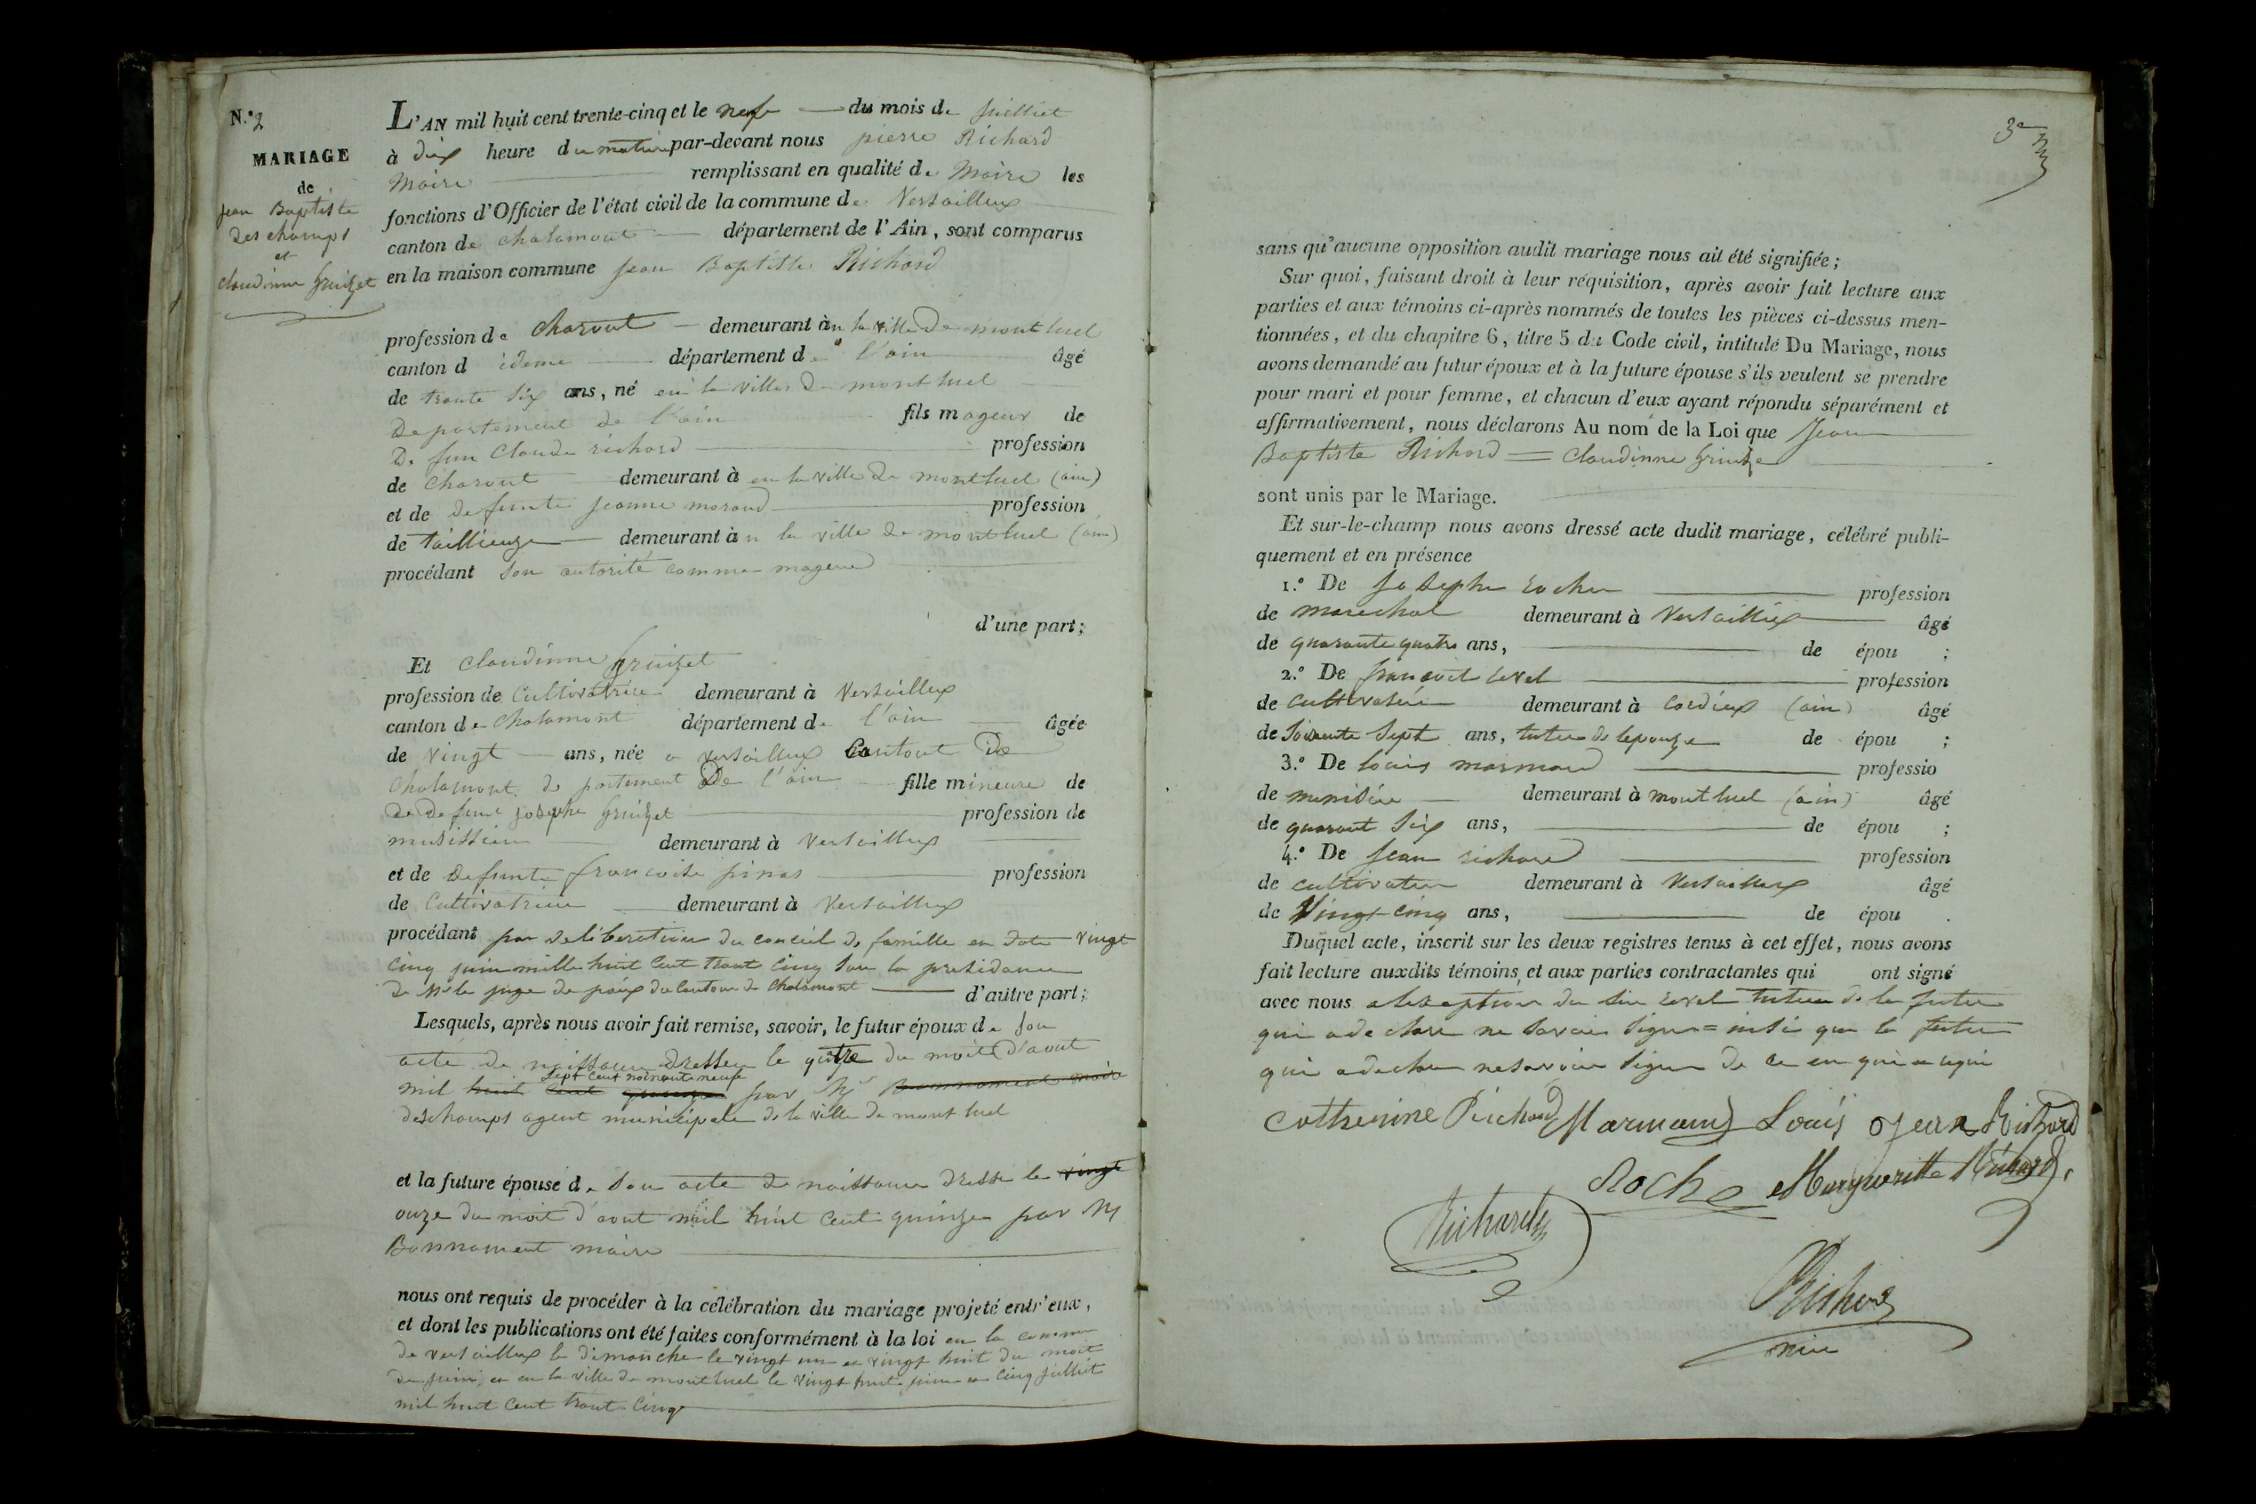 N.º 2
MARIAGE
de
jean Baptiste
Deschamps
et
claudinne Gruizet
L'AN mil huit cent trente-cinq et le nefe du mois de juilliet
à dix heure du matin par-devant nous pierre Richard
Maire remplissant en qualité de Maire les
fonctions d'Officier de l'état civil de la commune de Versaillieux
canton de chalamont département de l'Ain, sont comparus
en la maison commune jean Baptiste Richard
profession de charont demeurant àn la ville De montluel
canton d ideme département de l'ain âgé
de trante six ans, né en la ville De montluel
Departement de l'ain fils mageur de
De feu Claude richard profession
de charont demeurant à en la ville De montluel (ain)
et de defunte jeanne morand profession
de taillieuze demeurant àn la ville De montluel (ain)
procédant son autorité comme mageur
d'une part;
Et claudinne gruizet
profession de Cultivatrice demeurant à Versaillieux
canton de chalamont département de l'ain âgée
de vingt ans, née a versaillieux Cantont De
chalamont departement De l'ain fille mineure de
De Defunt josephe Gruizet profession de
musissien demeurant à Versaillieux
et de Defunte francoise pinas profession
de Cultivatrice demeurant à Versaillieux
procédant par deliberation du conseil de famille en date vingt
cinq juin mille huit cent trant cinq sou la presidance
De Mr le juge de paix du Canton de chalamont d'autre part;
Lesquels, après nous avoir fait remise, savoir, le futur époux de son
acte de naissance dressee le qutre du moit d'aout
sept cent nonante neufe
mil huit cent quinze par Mr Bonnament maire
deschamps agent municipale de la ville de montluel
et la future épouse de son acte de naissance dresse le vingt
onze du moit d'aout mil huit cent quinze par M
Bonnament maire
nous ont requis de procéder à la célébration du mariage projeté entr'eux,
et dont les publications ont été faites conformément à la loi en la commune
De versaillieux le dimanche le vingt un et vingt huit du moit
De juin, et en la ville de montluel le vingt huit juin et cinq juilliet
mil huit cent trant cinq
3e
sans qu'aucune opposition audit mariage nous ait été signifiée;
Sur quoi, faisant droit à leur réquisition, après avoir fait lecture aux
parties et aux témoins ci-après nommés de toutes les pièces ci-dessus men-
tionnées, et du chapitre 6, titre 5 du Code civil, intitulé Du Mariage, nous
avons demandé au futur époux et à la future épouse s'ils veulent se prendre
pour mari et pour femme, et chacun d'eux ayant répondu séparément et
affirmativement, nous déclarons Au nom de la Loi que Jean
Baptiste Richard = Claudinne Gruize
sont unis par le Mariage.
Et sur-le-champ nous avons dressé acte dudit mariage, célébré publi-
quement et en présence
1.º De josephe rocher profession
de marechal demeurant à Versaillieux âgé
de quarante quatre ans, de épou ;
2.º De francoit revel profession
de cultivateur demeurant à Cordieux (ain) âgé
de soisante sept ans, tuteur de lepouze de épou ;
3.º De louis marmand professio
de menisier demeurant à montluel (ain) âgé
de quarant six ans, de épou ;
4.º De jean richard profession
de cultivateur demeurant à Versaillieux âgé
de Vingt-cinq ans, de épou .
Duquel acte, inscrit sur les deux registres tenus à cet effet, nous avons
fait lecture auxdits témoins, et aux parties contractantes qui ont signé
avec nous alexeption du sieur revel tuteur de la future
qui adeclare ne savoir signe = insi que la future
qui adeclare nesavoir signe de ce en quis requi
Catherinne Richard Marmand Louis Jean Richard
Roche Margueritte Richard
Richard
Richard
mire